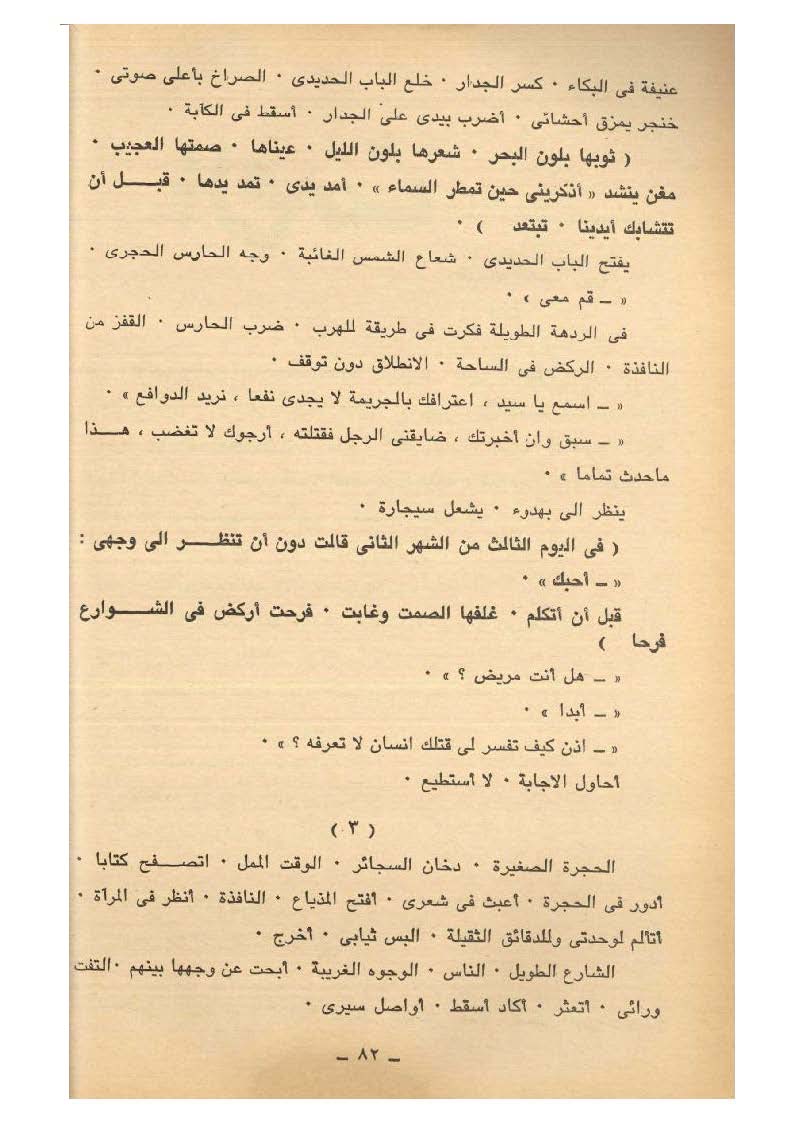 عنيفة فى البكاء ٠ كسر الجدار ٠ خلع الباب الحديدى ٠ الصراخ بأعلى صوتى ٠
خنجر يمزق أحشائى ٠ أضرب بيدى على الجدار ٠ أسقط فى الكآبة ٠
( ثوبها بلون البحر ٠ شعرها بلون الليل ٠ عيناها ٠ صمتها العجيب ٠
مغن ينشد « أذكرينى حين تمطر السماء » ٠ أمد يدى ٠ تمد يدها ٠ قبـــل أن
تتشابك أيدينا ٠ تبتعد ) ٠
يفتح الباب الحديدى ٠ شعاع الشمس الغائبة ٠ وجه الحارس الحجرى ٠
« ــ قم معى » ٠
فى الردهة الطويلة فكرت فى طريقة للهرب ٠ ضرب الحارس ٠ القفز من
النافذة ٠ الركض فى الساحة ٠ الانطلاق دون توقف ٠
« ــ اسمع يا سيد ، اعترافك بالجريمة لا يجدى نفعا ، نريد الدوافع » ٠
« ــ سبق وان أخبرتك ، ضايقنى الرجل فقتلته ، أرجوك لا تغضب ، هـــذا
ماحدث تماما » ٠
ينظر الى بهدوء ٠ يشعل سيجارة ٠
( فى اليوم الثالث من الشهر الثانى قالت دون أن تنظـــر الى وجهى :
« ــ أحبك » ٠
قبل أن أتكلم ٠ غلفها الصمت وغابت ٠ فرحت أركض فى الشـــوارع
فرحا )
« ــ هل أنت مريض ؟ » ٠
« ــ أبدا » ٠
« ــ اذن كيف تفسر لى قتلك انسان لا تعرفه ؟ » ٠
أحاول الاجابة ٠ لا أستطيع ٠
( ٣ )
الحجرة الصغيرة ٠ دخان السجائر ٠ الوقت الممل ٠ اتصـــفح كتابا ٠
أدور فى الحجرة ٠ أعبث فى شعرى ٠ أفتح المذياع ٠ النافذة ٠ أنظر فى المرآة ٠
أتألم لوحدتى وللدقائق الثقيلة ٠ البس ثيابى ٠ أخرج ٠
الشارع الطويل ٠ الناس ٠ الوجوه الغريبة ٠ أبحت عن وجهها بينهم ٠ التفت
ورائى ٠ أتعثر ٠ أكاد أسقط ٠ أواصل سيرى ٠
ــ ٨٢ ــ